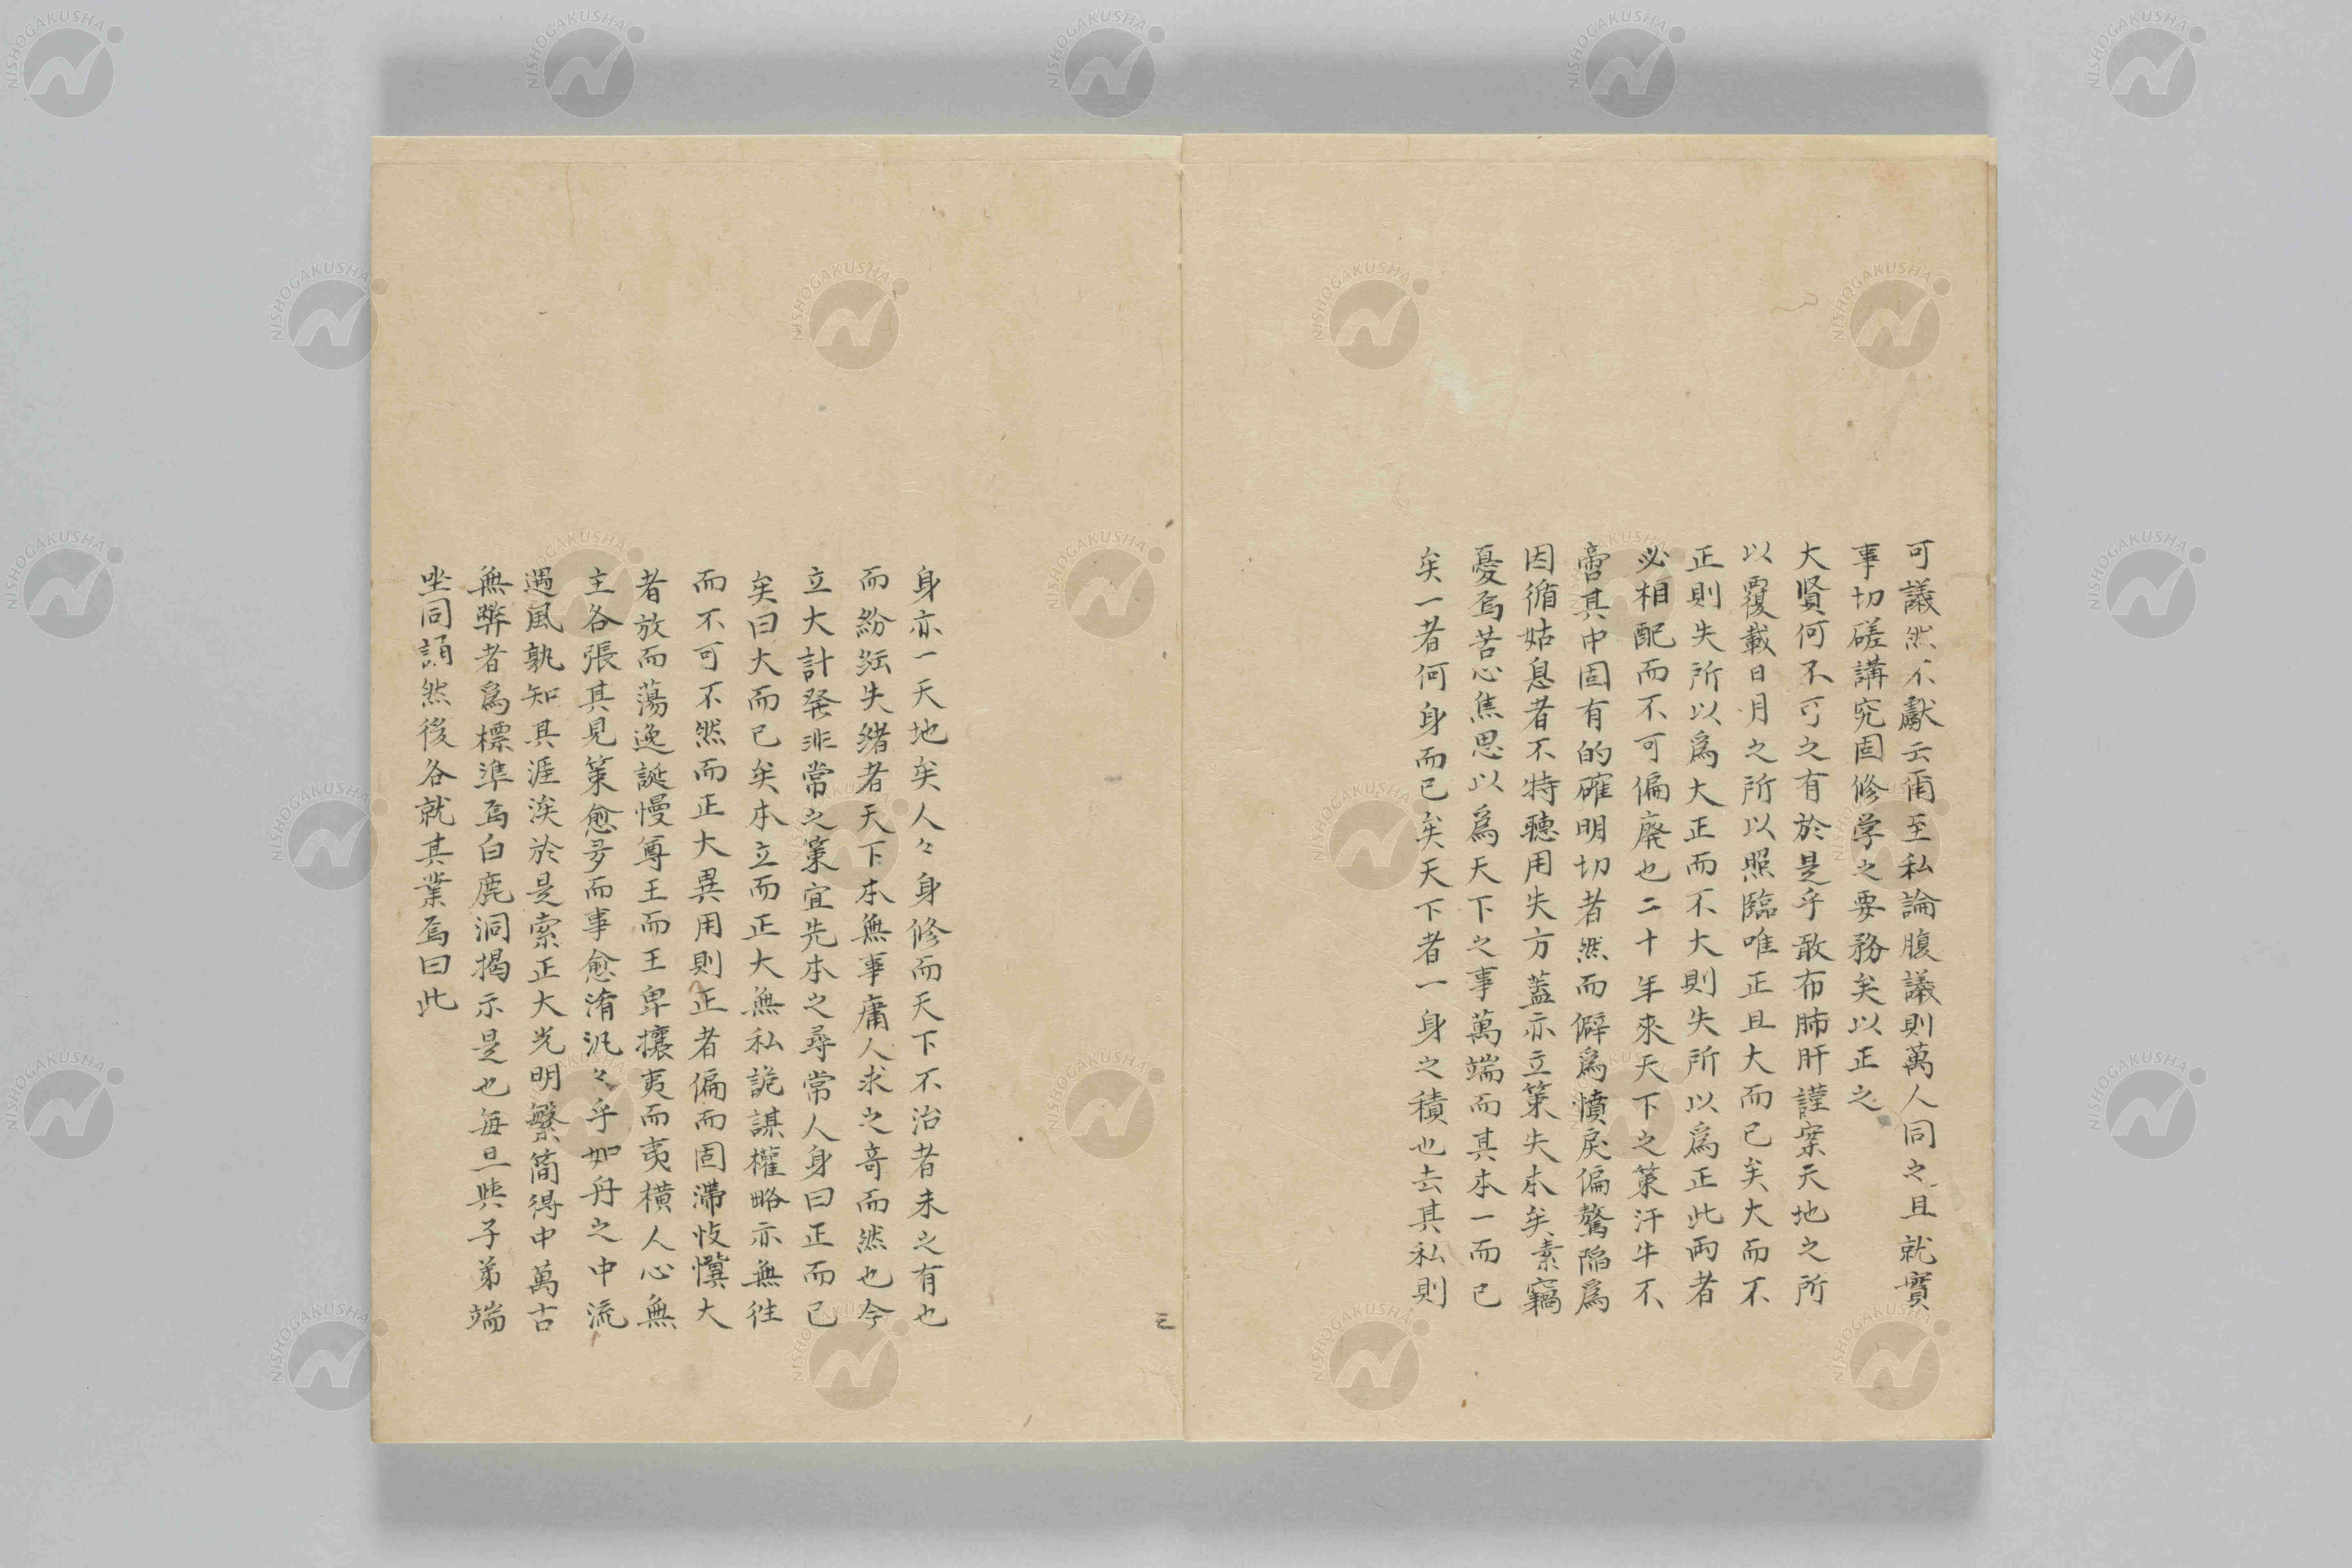 可議然不獻云爾至私論腹議則萬人同之且就實
事切磋講究固修学之要務矣以正之
大賢何不可之有於是乎敢布肺肝謹案天地之所
以覆載日月之所以照臨唯正且大而已矣大而不
正則失所以爲大正而不大則失所以爲正此兩者
必相配而不可偏廃也二十年來天下之策汗牛不
啻其中固有的確明切者然而僻爲憤戾偏驁陷爲
因循姑息者不特聴用失方蓋亦立策失本矣素竊
憂焉苦心焦思以爲天下之事萬端而其本一而已
矣一者何身而已矣天下者一身之積也去其私則
身亦一天地矣人々身修而天下不治者未之有也
而紛紜失緒者天下本無事庸人求之奇而然也今
立大計発非常之策宜先本之尋常人身曰正而已
矣曰大而已矣本立而正大無私詭謀權略亦無往
而不可不然而正大異用則正者偏而固滯忮懻大
者放而蕩逸誕慢尊王而王卑攘夷而夷横人心無
主各張其見策愈多而事愈淆汎々乎如舟之中流
遇風孰知其涯涘於是索正大光明繁簡得中萬古
無弊者爲標準焉白鹿洞揭示是也每旦與子弟端
坐同誦然後各就其業焉曰此
三
NISHOGAKUSHA